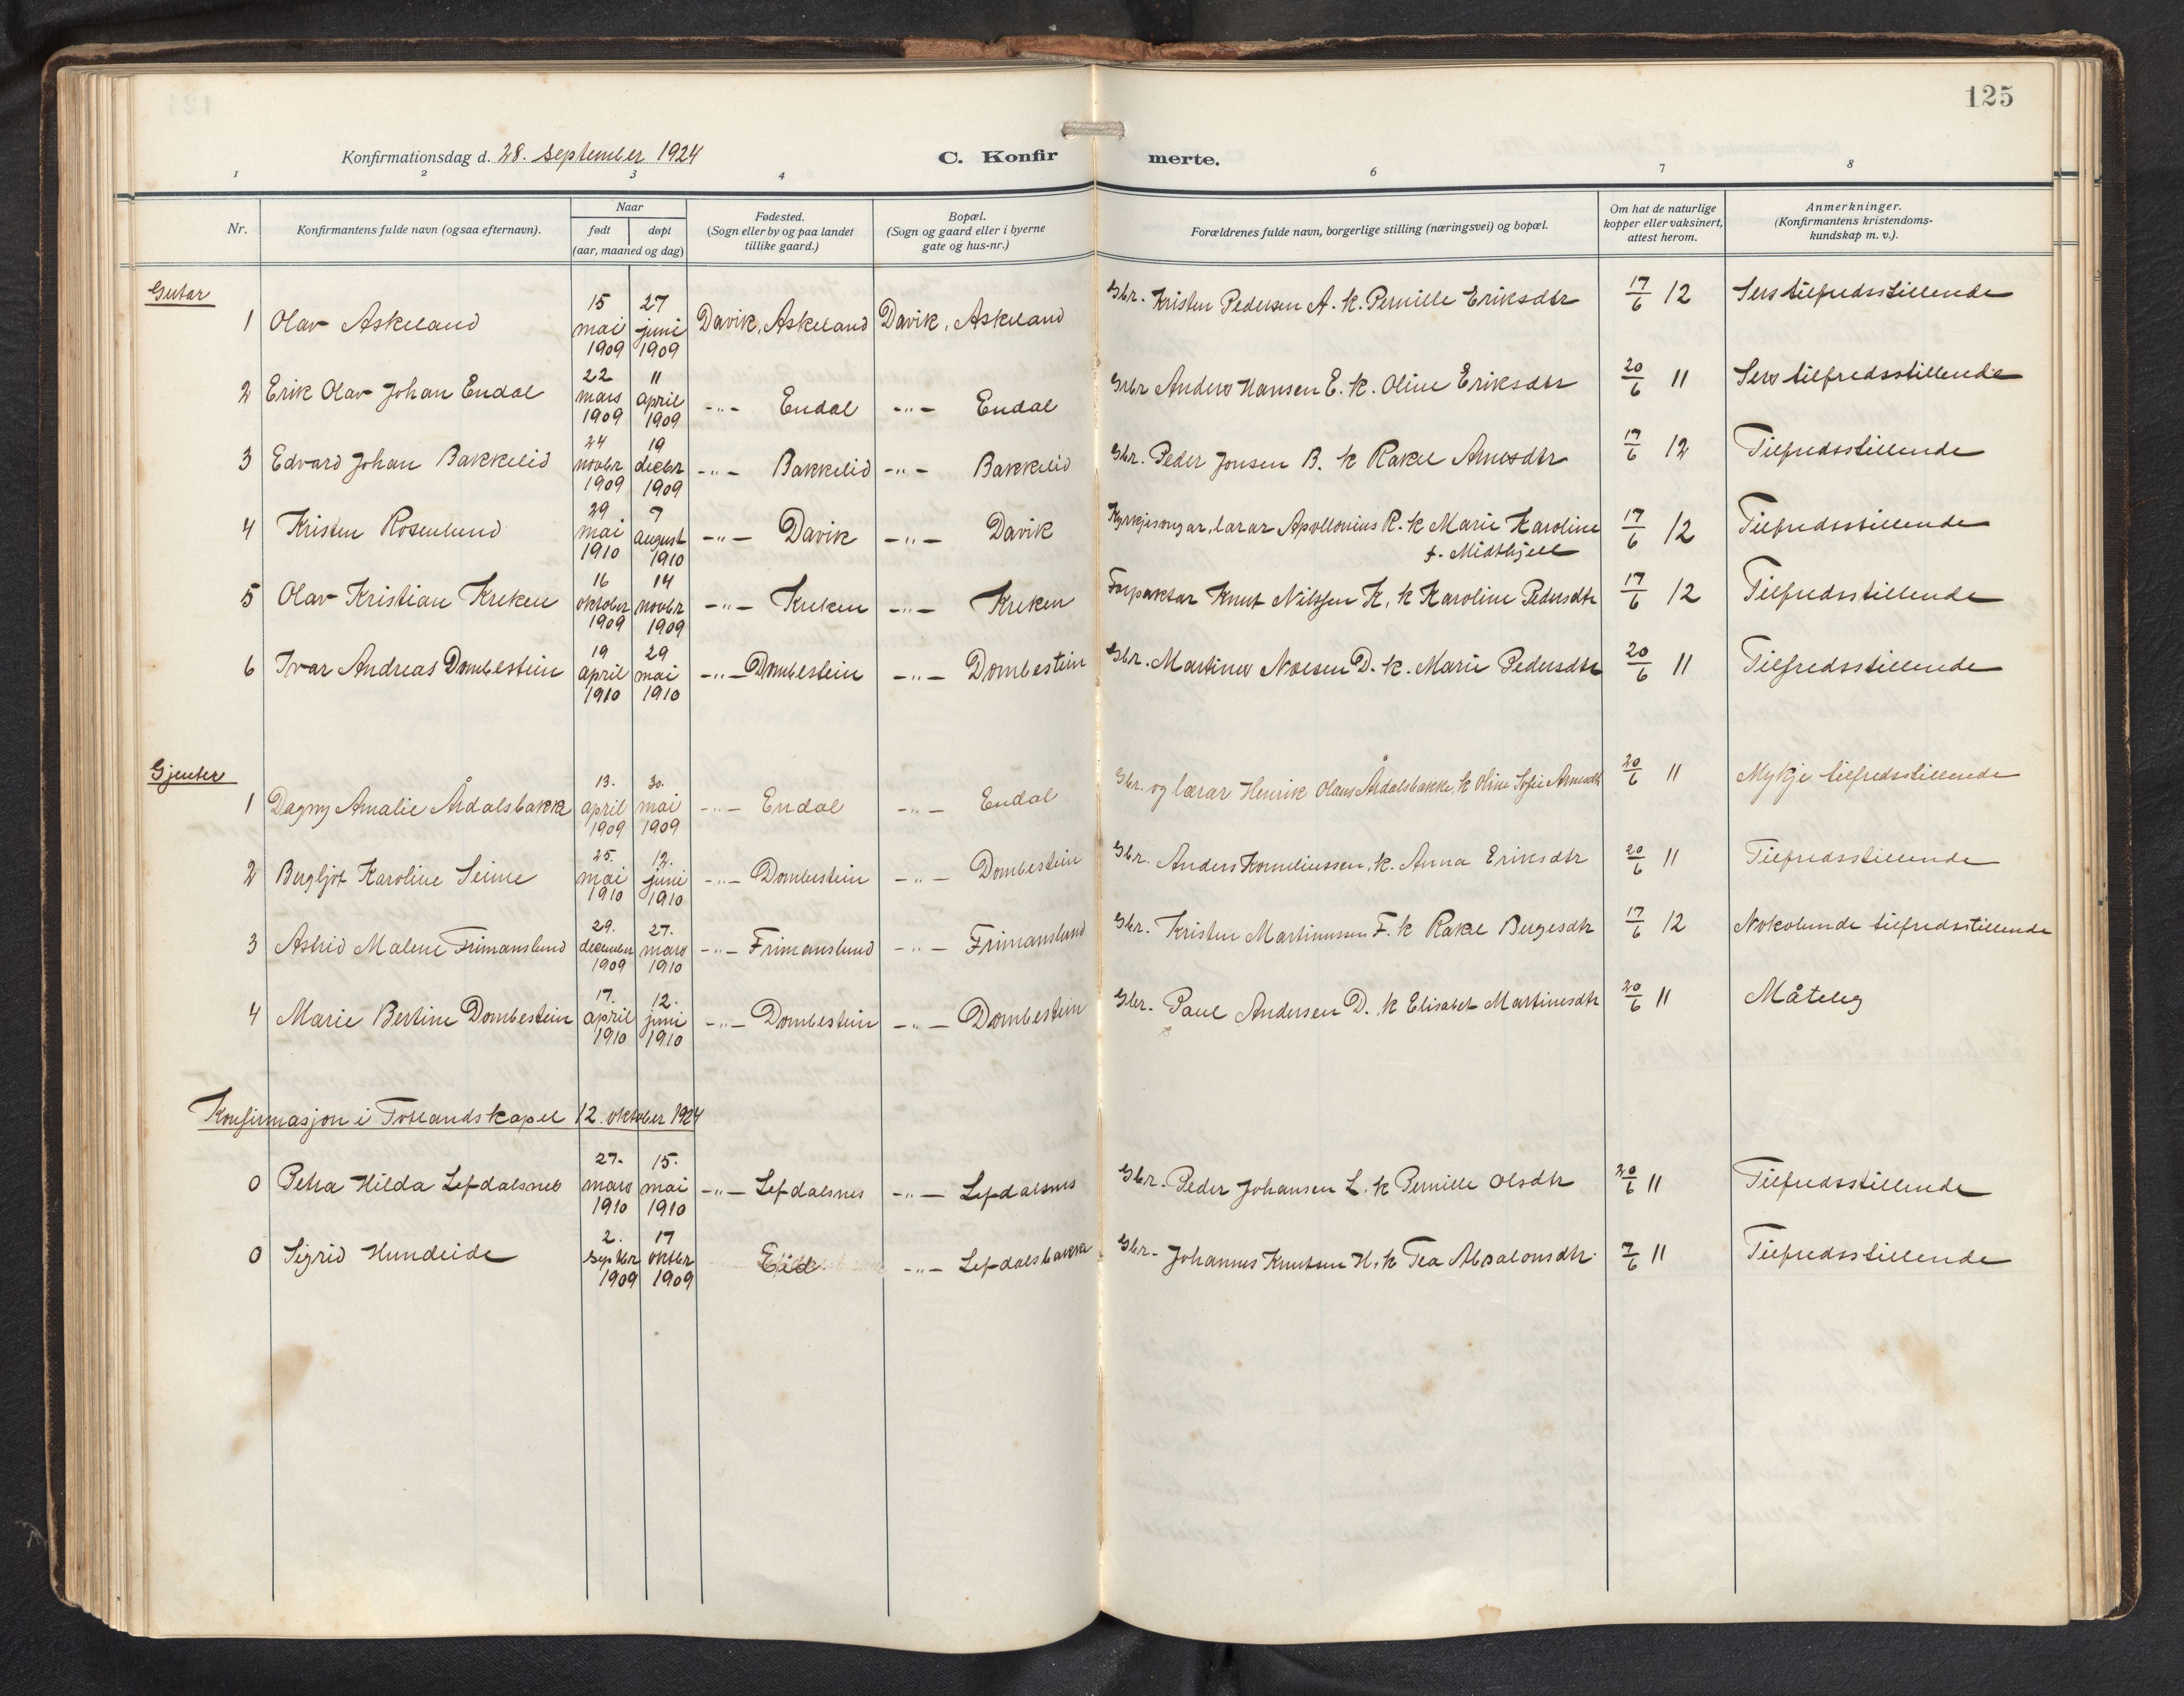 125
Konfirmationsdag d. 28. september 1924 C. Konfir merte.
1 2 3 4 6 7 8
Nr. Konfirmantens fulde navn (ogsaa efternavn). Naar født døpt (aar, maaned og dag) Fødested. (Sogn eller by og paa landet tillike gaard.) Bopæl. (Sogn og gaard eller i byerne gate og hus-nr.) Forældrenes fulde navn, borgerlige stilling (næringsvei) og bopæl. Om hat de naturlige kopper eller vaksinert, attest herom. Anmerkninger. (Konfirmantens kristendoms- kundskap m. v.).
Gutar
1 Olav Askeland 15 mai 1909 27 juni 1909 Davik, Askeland Davik, Askeland Gbr. Kristen Pedersen A. k. Pernille Eriksdtr 17/6 12 Sers tilfredsstillende
2 Erik Olav Johan Endal 22 mars 1909 11 april 1909 -"- Endal -"- Endal Gbr Anders Hansen E. k. Oline Eriksdtr 20/6 11 Sers tilfredsstillende
3 Edvard Johan Bakkelid 24 novbr 1909 19 decbr 1909 -"- Bakkelid -"- Bakkelid Gbr. Peder Jonsen B. k Rakel Arnesdtr 17/6 12 Tilfredsstillende
4 Kristen Rosenlund 29 mai 1910 7 august 1910 -"- Davik -"- Davik Kyrkjesongar, lærar Apollonius R. k Marie Karoline f. Midthjell 17/6 12 Tilfredsstillende
5 Olav Kristian Kreken 16 oktober 1909 14 novbr 1909 -"- Kreken -"- Kreken Forpaktar Knut Nilssen K. k Karoline Pedersdtr 17/6 12 Tilfredsstillende
6 Ivar Andreas Dombestein 19 april 1910 29 mai 1910 -"- Dombestein -"- Dombestein Gbr. Martines Nilsen D. k. Marie Pedersdtr 20/6 11 Tilfredsstillende
Gjenter
1 Dagny Amalie Årdalsbakke 13. april 1909 30. mai 1909 -"- Endal -"- Endal Gbr. og lærar Henrik Olaus Årdalsbakke, k Oline Sofie Arnesdtr 20/6 11 Mykje tilfredsstillende
2 Bergljot Karoline Seime 25. mai 1910 12. juni 1910 -"- Dombestein -"- Dombestein Gbr. Anders Korneliussen, k. Anna Eriksdtr 20/6 11 Tilfredsstillende
3 Astrid Malene Frimanslund 29. december 1909 27. mars 1910 -"- Frimanslund -"- Frimanslund Gbr. Kristen Martinussen F. k Rakel Bergesdtr 17/6 12 Nokolunde tilfredsstillende
4 Marie Bertine Dombestein 17. april 1910 12. juni 1910 -"- Dombestein -"- Dombestein Gbr. Paul Andersen D. k Elisabet Martinesdtr 20/6 11 Måteleg
Konfirmasjon i Totlands kapel 12. oktober 1924
0 Petra Hilda Lefdalsnes 27. mars 1910 15. mai 1910 -"- Lefdalsnes -"- Lefdalsnes Gbr. Peder Johansen L. k Pernille Olsdtr 20/6 11 Tilfredsstillende
0 Sigrid Hundeide 2. septbr 1909 17 oktbr 1909 Eid -"- Lefdalsbakke Gbr. Johannes Knutsen H. k Tea Absalonsdtr. 7/6 11 Tilfredsstillende